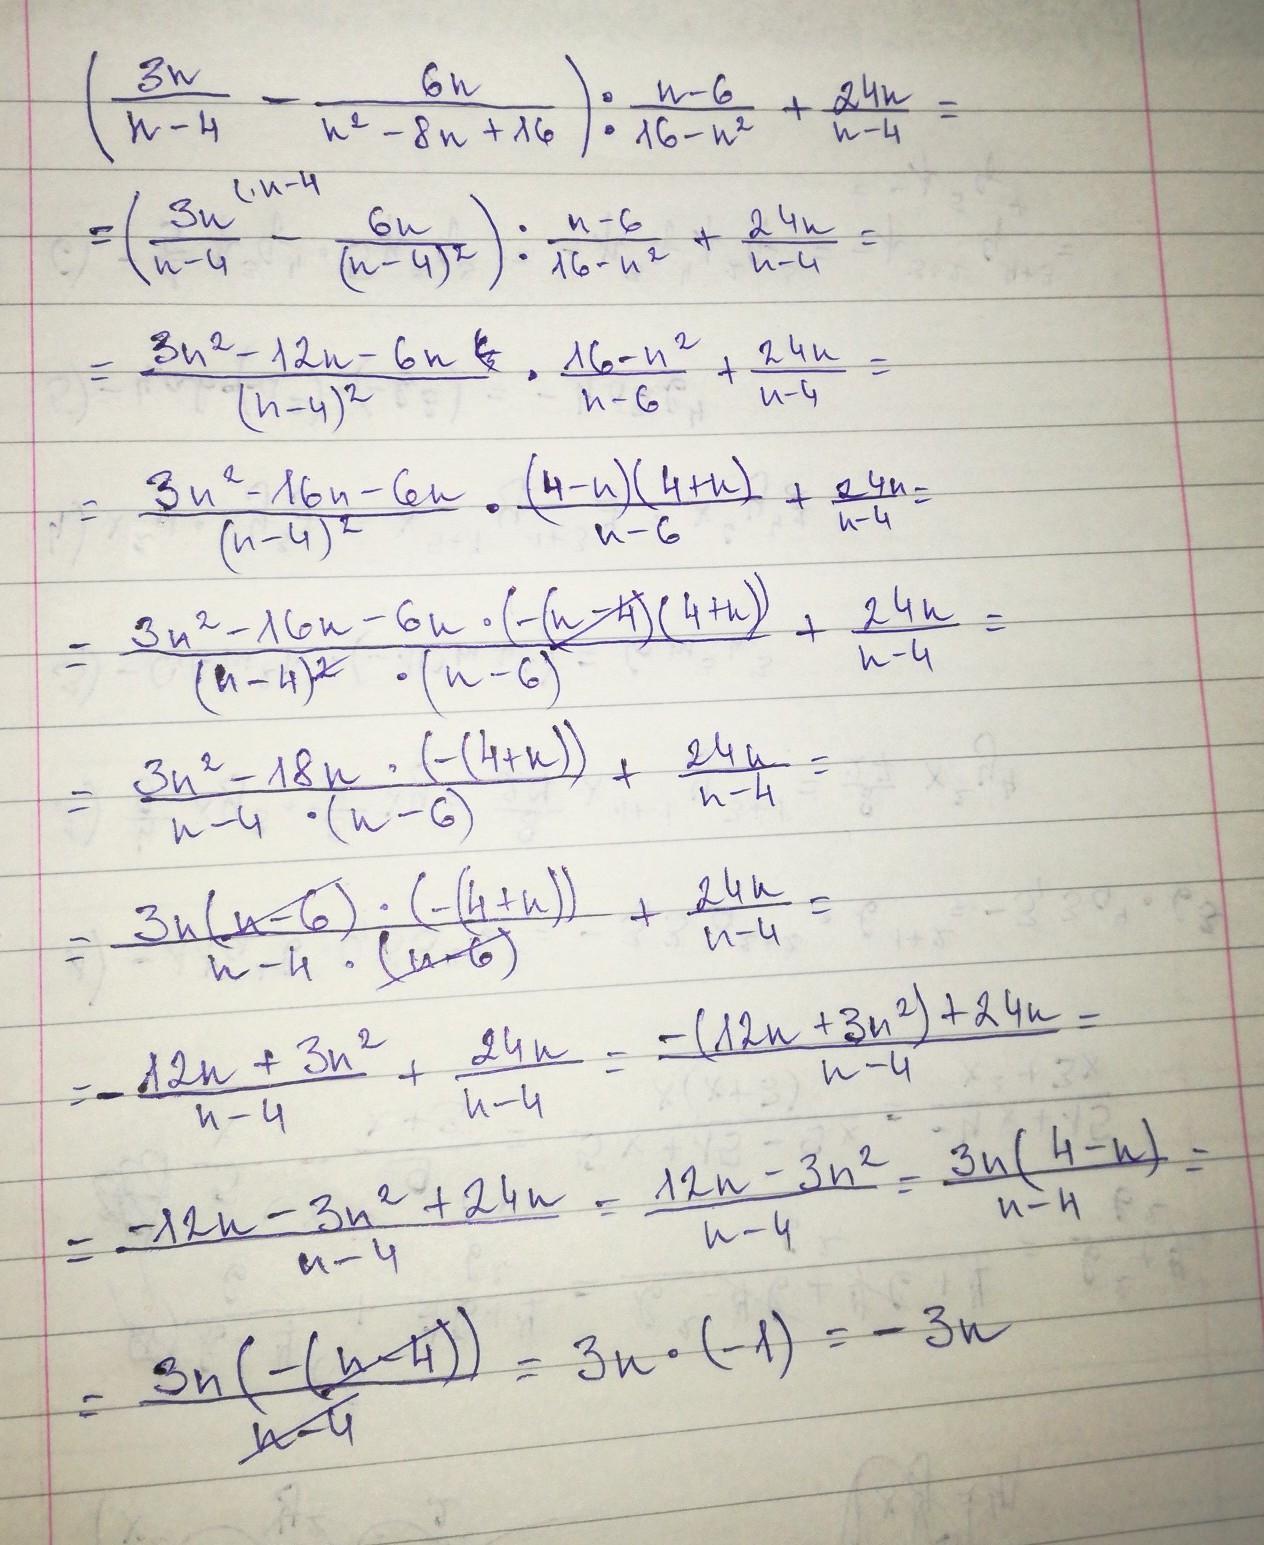 (3n/(n-4) - 6n/(n²-8n+16)) : (n-6)/(16-n²) + 24n/(n-4) =
= (3n/(n-4) (·n-4 - 6n/(n-4)²) : (n-6)/(16-n²) + 24n/(n-4) =
= (3n²-12n-6n)/(n-4)² · (16-n²)/(n-6) + 24n/(n-4) =
= (3n²-16n-6n)/(n-4)² · (4-n)(4+n)/(n-6) + 24n/(n-4) =
= 3n²-16n-6n·(-(n-4)(4+n))/((n-4)²·(n-6)) + 24n/(n-4) =
= 3n²-18n·(-(4+n))/(n-4·(n-6)) + 24n/(n-4) =
= 3n(n-6)·(-(4+n))/(n-4·(n-6)) + 24n/(n-4) =
= -(12n+3n²)/(n-4) + 24n/(n-4) = (-(12n+3n²)+24n)/(n-4) =
= (-12n-3n²+24n)/(n-4) = (12n-3n²)/(n-4) = 3n(4-n)/(n-4) =
= 3n(-(n-4))/(n-4) = 3n·(-1) = -3n